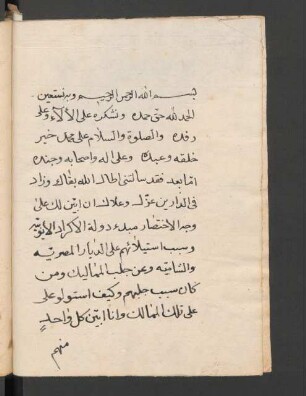 بسم الله الرحمن الرحيم وبه نستعين
الحمد لله حق حمده ونشكره على الآلاء وعلى
رفده والصلوة والسلام على محمد خير
خلقه وعبده وعلى اله واصحابه وجنده
اما بعد فقد سالتنى اطال الله بقاك وزاد
فى الدارين عزك وعلاك ان ابين لك على
وجه الاختصار مبدء دولة الاكراد الايوبيه
وسبب استيلائهم على الديار المصريه
والشاميه وعن جلب المماليك ومن
كان سبب جلبهم وكيف استولو على
على تلك الممالك وانا ابين كل واحد
منهم